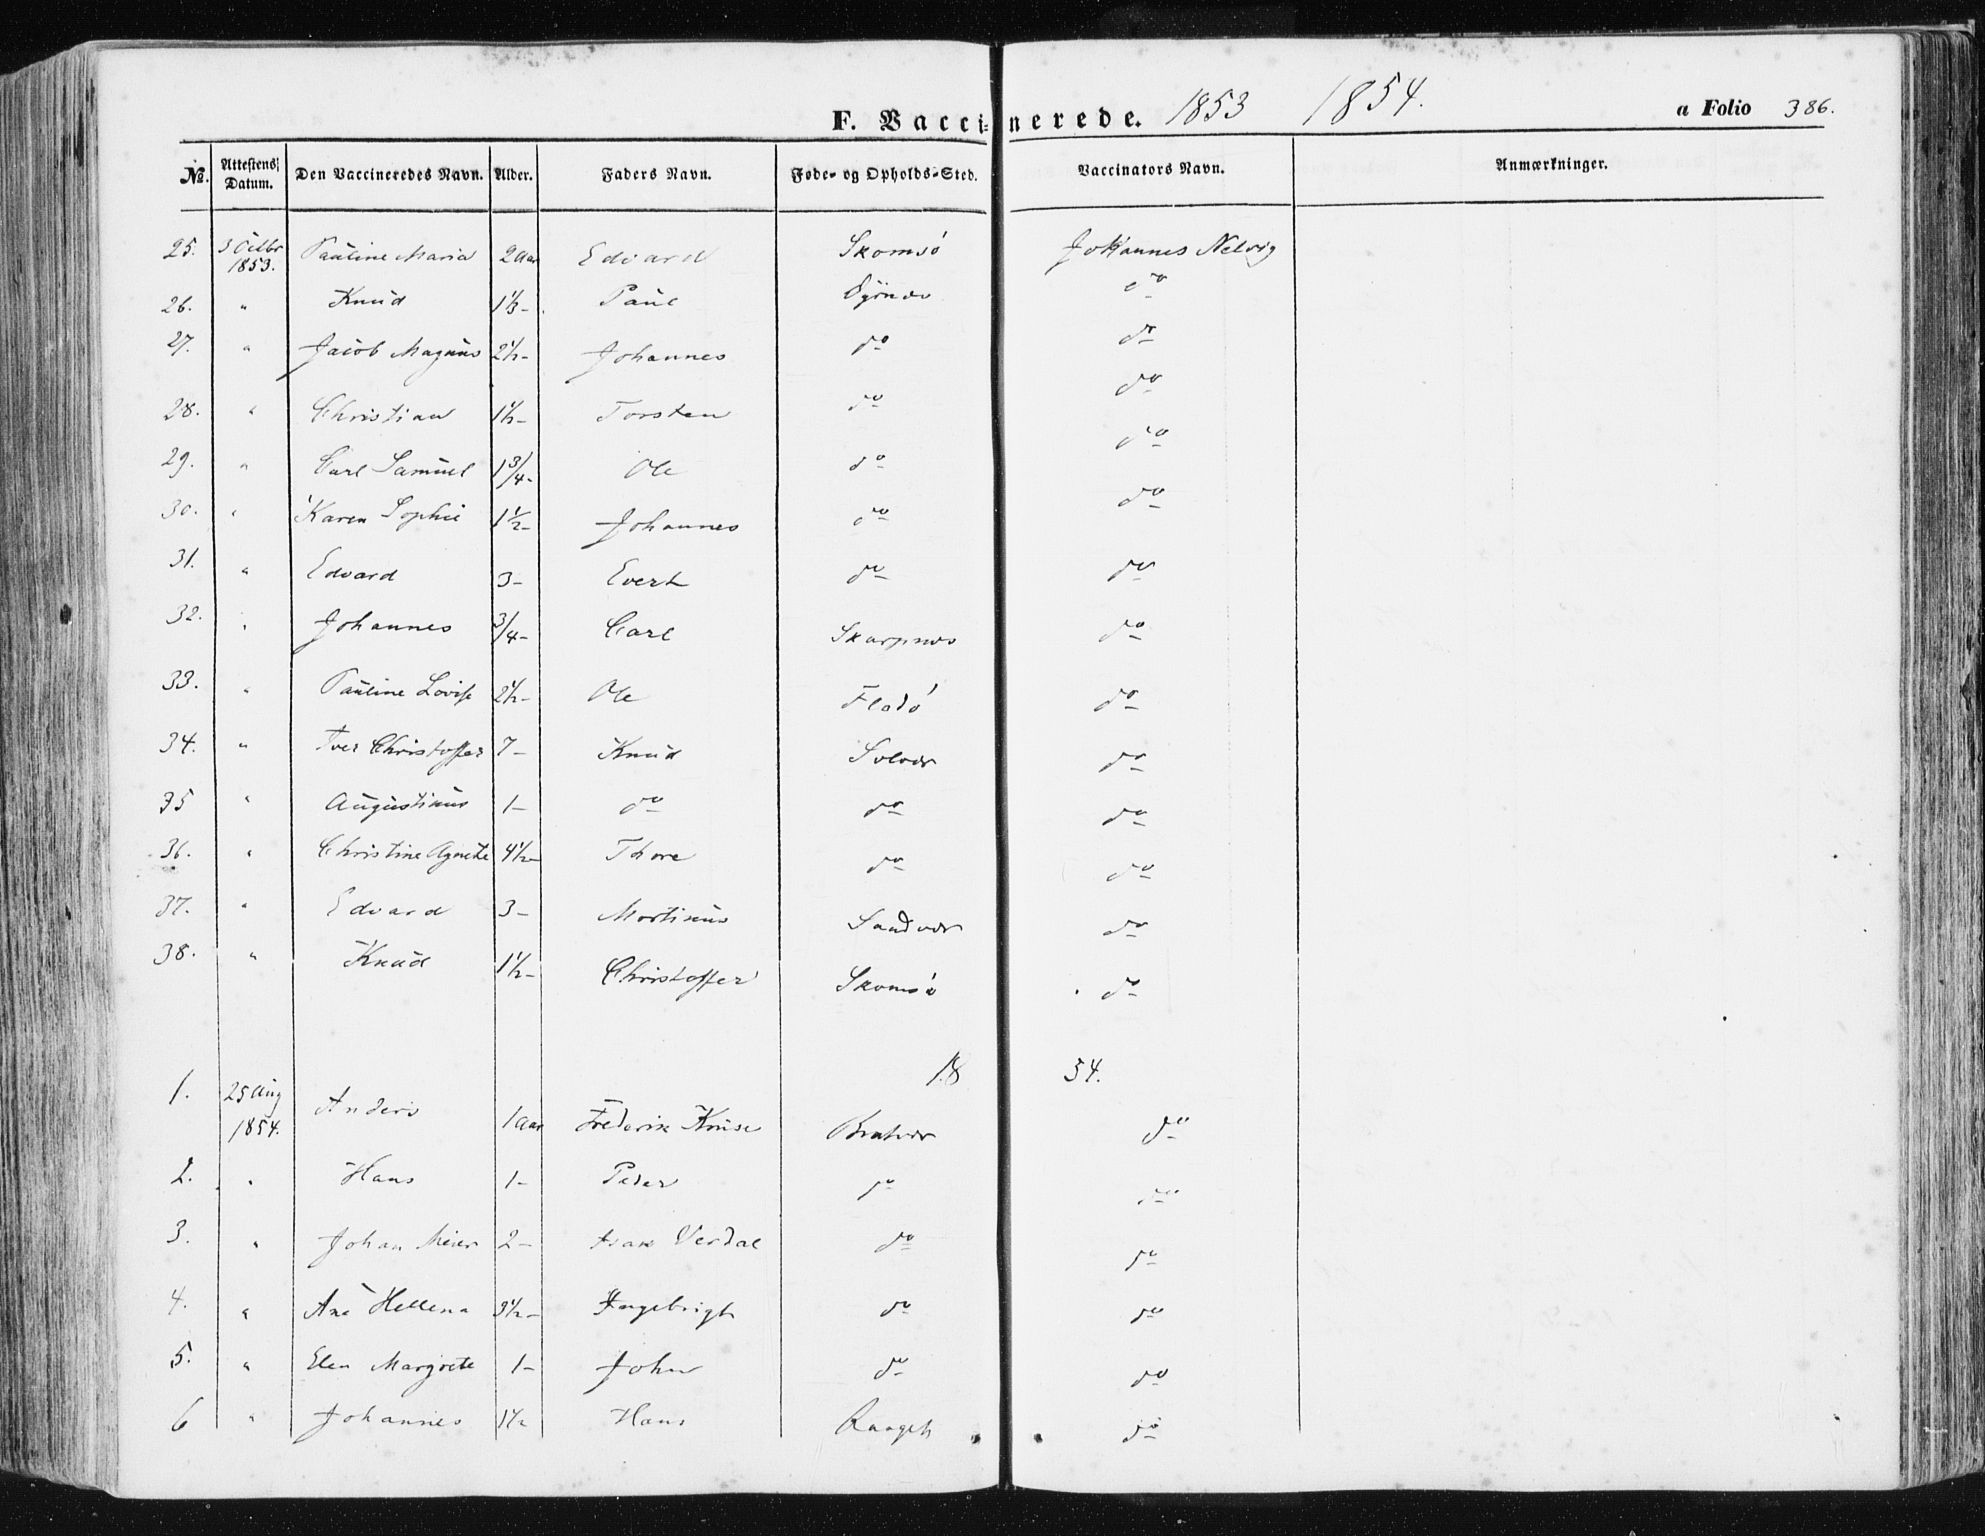 F. Vaccinerede. 1853 1854. a Folio 386.
№. Attestens Datum. Den Vaccineredes Navn. Alder. Faders Navn. Føde- og Opholds-Sted. Vaccinators Navn. Anmærkninger.
25. 3 Octbr 1853. Pauline Maria 2 Aar Edvard Skomsö Johannes Nelvig
26. " Knud 1½- Paul do
27. " Jacob Magnus 2½- Johannes do do
28. " Christian 1½- Torsten do do
29. " Carl Samuel 1¾- Ole do do
30. " Karen Sophie 1½- Johannes do do
31. " Edvard 3- Evert do do
32. " Johannes ¾- Carl Skarpnes do
33. " Pauline Lovise 2½- Ole Flatö do
34. " Iver Christoffer 7- Knud Solvær do
35 " Augustinus 1- do do do
36. " Christine Agnete 4½- Thore do do
37. " Edvard 3- Mortinus Sandvær do
38. " Knud 1½- Christoffer Skomsö do
1854.
1. 25 Aug 1854. Anders 1 Aar Frederik Kruse Bratvær do
2. " Hans 1- Peder do do
3. " Johan Meier 2- Isak Verdal do do
4. " Ane Hellena 3½- Ingebrigt do do
5. " Elen Margrete 1- John do do
6 " Johannes 1½ Hans do